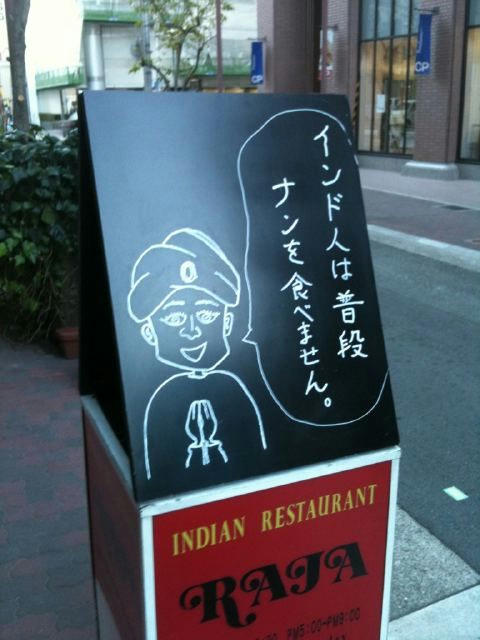 インド人は普段
ナンを食べません。
INDIAN RESTAURANT
RAJA
PM5:00-PM9:00
CP
CP